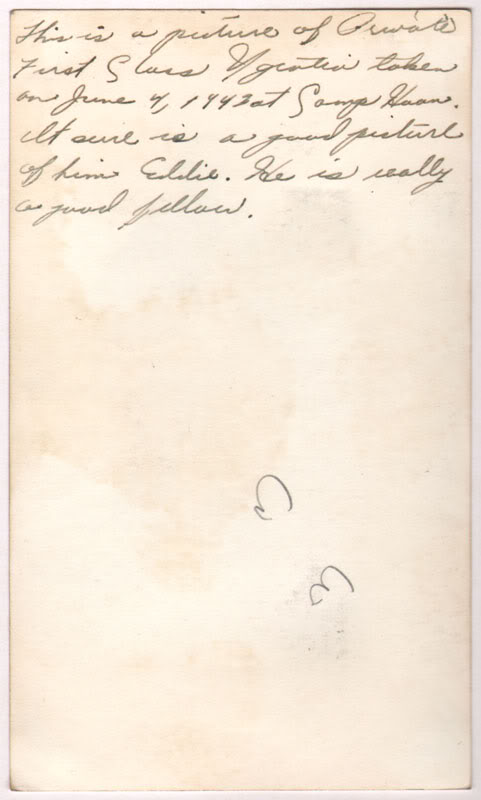 This is a picture of Private
First Class taken
on June 4, 1943 at Camp Haan.
It sure is a good picture
of him Eddie. He is really
a good fellow.